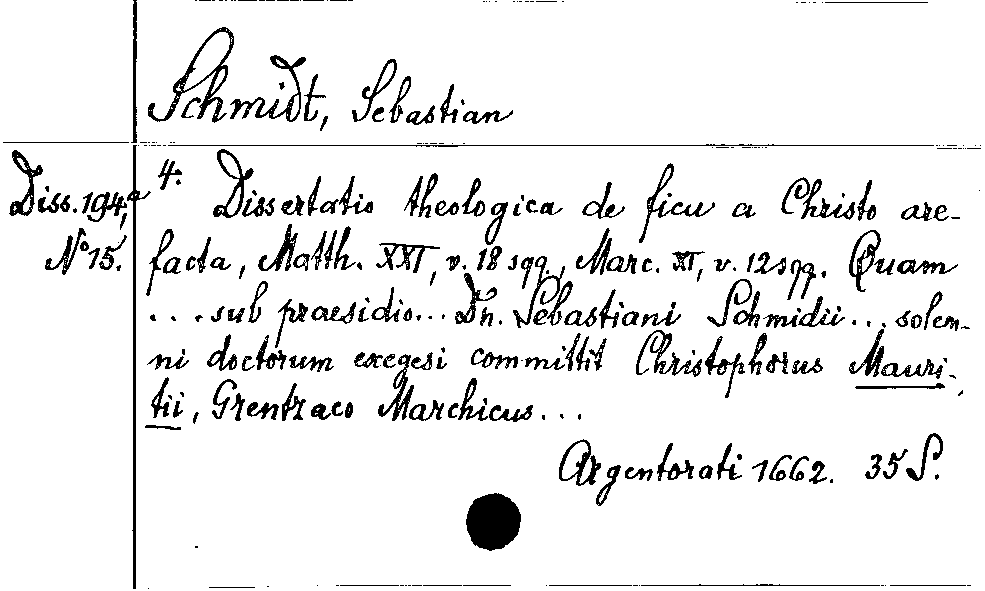 Schmidt, Sebastian
Diss. 194,a 4. Dissertatio theologica de ficu a Christo are-
No 15. facta, Matth. XXI, v. 18 sqq., Marc. XI, v. 12 sqq. Quam
... sub praesidio... Dn. Sebastiani Schmidii ... solen-
ni doctorum exegesi committit Christophorus Mauri-
tii, Grentzaco Marchicus...
Argentorati 1662. 35 S.